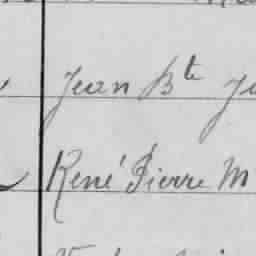 Jean Bte
René Pierre M